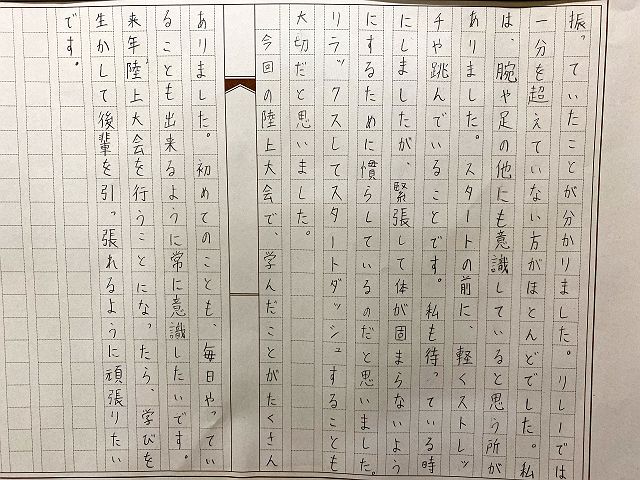 振っていたことが分かりました。リレーでは
一分を超えていない方がほとんどでした。私
は、腕や足の他にも意識していると思う所が
ありました。スタートの前に、軽くストレッ
チや跳んでいることです。私も待っている時
にしましたが、緊張して体が固まらないよう
にするために慣らしているのだと思いました。
リラックスしてスタートダッシュすることも
大切だと思いました。
今回の陸上大会で、学んだことがたくさん
ありました。初めてのことも、毎日やってい
ることも出来るように常に意識したいです。
来年陸上大会を行うことになったら、学びを
生かして後輩を引っ張れるように頑張りたい
です。